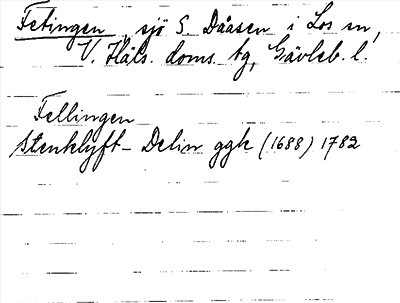 Fetingen, sjö S. Dåasen i Los sn,
V. Häls. doms. tg, Gävleb. l.
Fellingen
Stenklyft - Delin ggk (1688) 1782